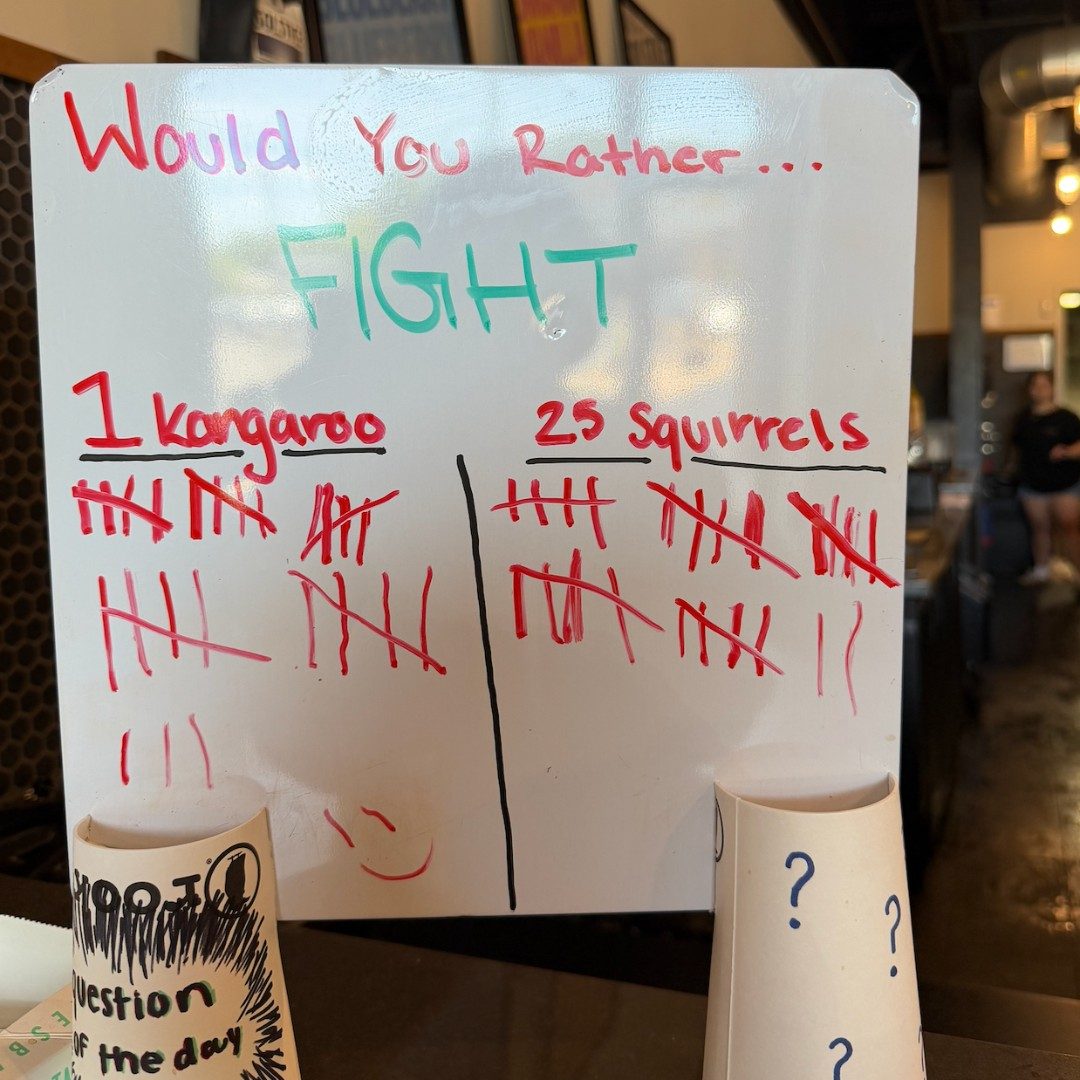 Would You Rather...
FIGHT
1 kangaroo
25 Squirrels
question
of the day
? ? ?